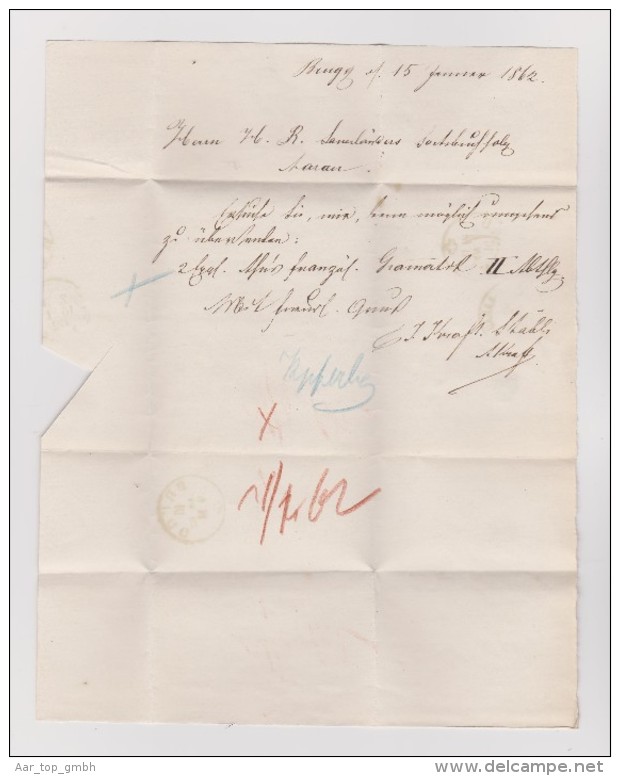 Brugg d. 15 Jenner 1862.
Herrn H. R. Sauerländers Sortbuchholg
Aarau.
Ersuche Sie, mir, wenn möglich umgehend
zu übersenden:
2 Expl. französ. Gramatik II Abthlg
Mit freundl. Gruss
J. Kraft. Stähli
A Kraft
X
X
62
Aar_top_gmbh
www.delcampe.net